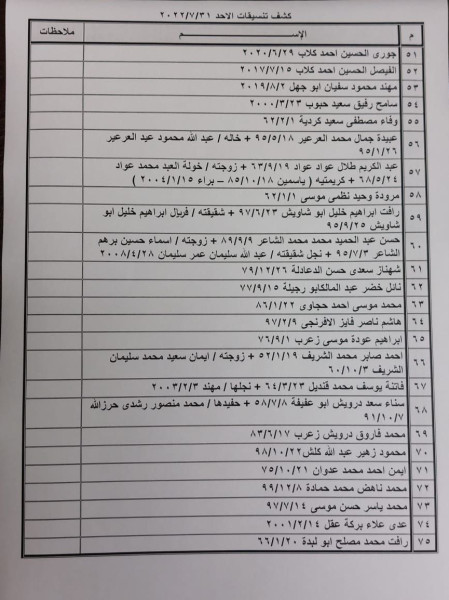 كشف تنسيقات الاحد ٢٠٢٢/٧/٣١
م الإســـــــم ملاحظات
٥١ جورى الحسين احمد كلاب ٢٠٢٠/٦/٢٩
٥٢ الفيصل الحسين احمد كلاب ٢٠١٧/٧/١٥
٥٣ مهند محمود سفيان ابو جهل ٢٠١٩/٨/٢
٥٤ سامح رفيق سعيد حبوب ٢٠٠٠/٣/٢٣
٥٥ وفاء مصطفى سعيد كردية ٦٢/٢/١
٥٦ عبيدة جمال محمد العرعير ٩٥/٥/١٨ + خاله / عبد الله محمود عبد العرعير
٩٥/١/٢٦
٥٧ عبد الكريم طلال عواد عواد ٦٣/٩/١٩ + زوجته / خولة العبد محمد عواد
٦٨/٥/٢٤ + كريمتيه ( ياسمين ٨٥/١٠/١٨ – براء ٢٠٠٤/١/١٥ )
٥٨ مرودة وحيد نظمى موسى ٦٢/١/١
٥٩ رافت ابراهيم خليل ابو شاويش ٩٧/٦/٢٣ + شقيقته / فريال ابراهيم خليل ابو
شاويش ٩٥/٩/٢٥
٦٠ حسن عبد الحميد محمد محمد الشاعر ٨٩/٩/٩ + زوجته / اسماء حسين برهم
الشاعر ٩٥/٧/٣ + نجل شقيقته / عبد الله سليمان عمر سليمان ٢٠٠٨/٤/٢٨
٦١ شهناز سعدى حسن الدعادلة ٧٩/١٢/٢٦
٦٢ نائل خضر عبد المالكابو رجيلة ٧٧/٩/١٥
٦٣ محمد موسى احمد حجاوى ٨٦/١/٢٢
٦٤ هاشم ناصر فايز الافرنجى ٩٧/٢/٩
٦٥ ابراهيم عودة موسى زعرب ٧٦/٩/١
٦٦ احمد صابر محمد الشريف ٥٢/١/١٩ + زوجته / ايمان سعيد محمد سليمان
الشريف ٦٠/١٠/٣
٦٧ فاتنة يوسف محمد قنديل ٦٤/٣/٢٣ + نجلها / مهند ٢٠٠٣/٢/٣
٦٨ سناء سعد درويش ابو عفيفة ٥٨/٧/٨ + حفيدها / محمد منصور رشدى حرزالله
٩١/١٠/٧
٦٩ محمد فاروق درويش زعرب ٨٣/٦/١٧
٧٠ محمود زهير عبد الله كلش ٩٨/١٠/٢٢
٧١ ايمن احمد محمد عدوان ٧٥/١٠/٢١
٧٢ محمد ناهض محمد حمادة ٩٩/١٢/٨
٧٣ محمد ياسر حسن موسى ٩٧/٧/١٤
٧٤ عدى علاء بركة عقل ٢٠٠١/٢/١٤
٧٥ رافت محمد مصلح ابو لبدة ٦٦/١/٢٠